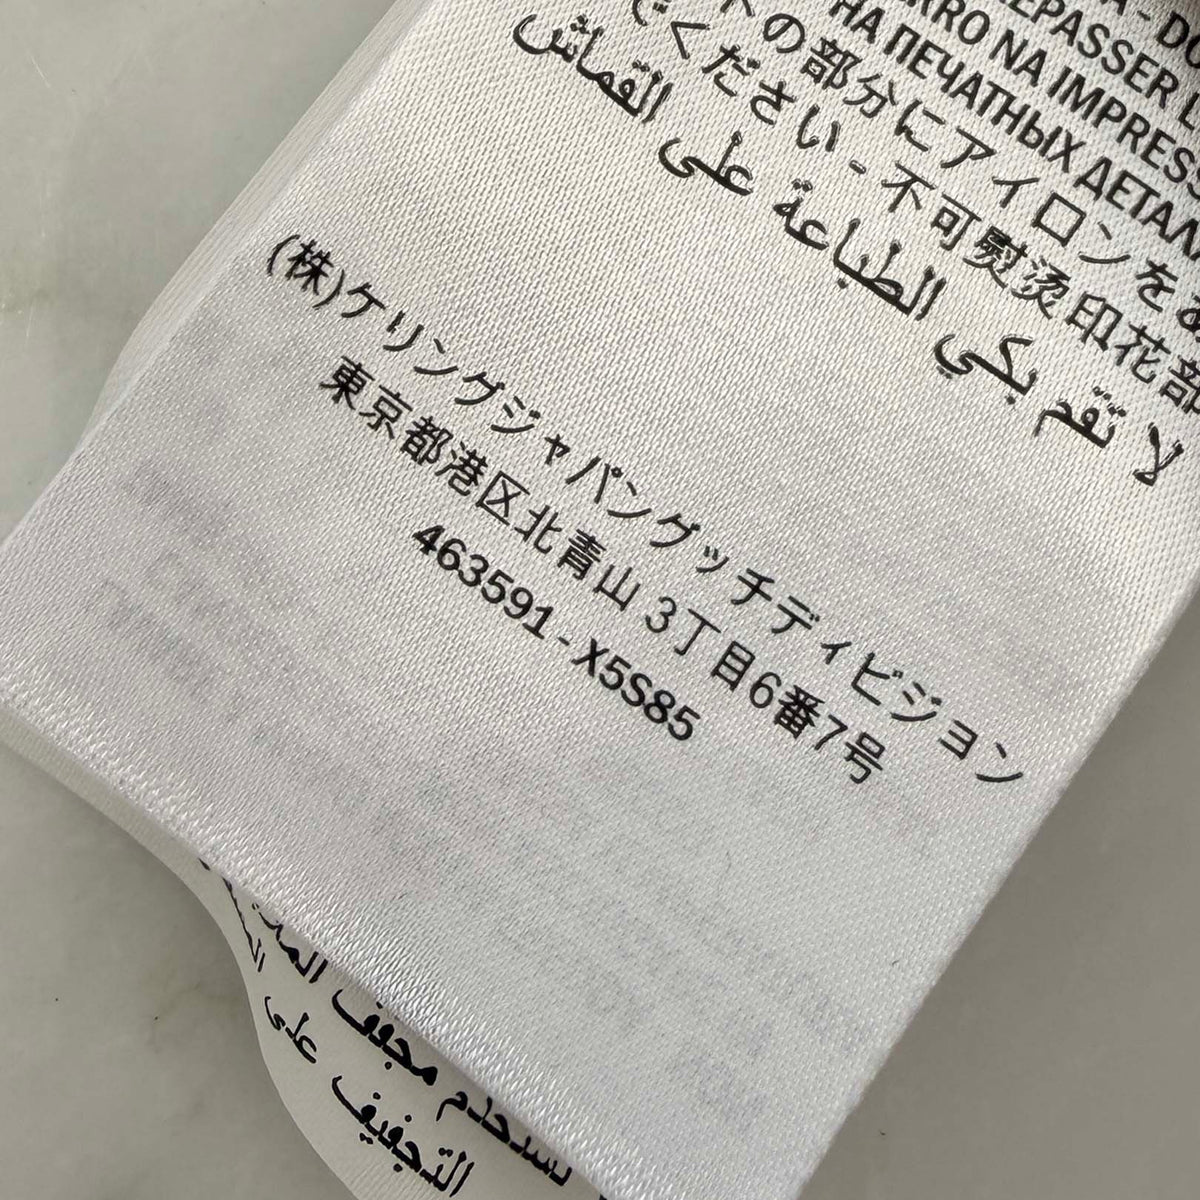 - DO
REPASSER L
FERRO NA IMPRESS
НА ПЕЧАТНЫХ ДЕТАЛЯ
トの部分にアイロンをあ
でください - 不可熨烫印花部
لا تقم بكي الطباعة على القماش
(株)ケリングジャパングッチディビジョン
東京都港区北青山 3丁目6番7号
463591 - X5S85
تستخدم مجفف
التجفيف على